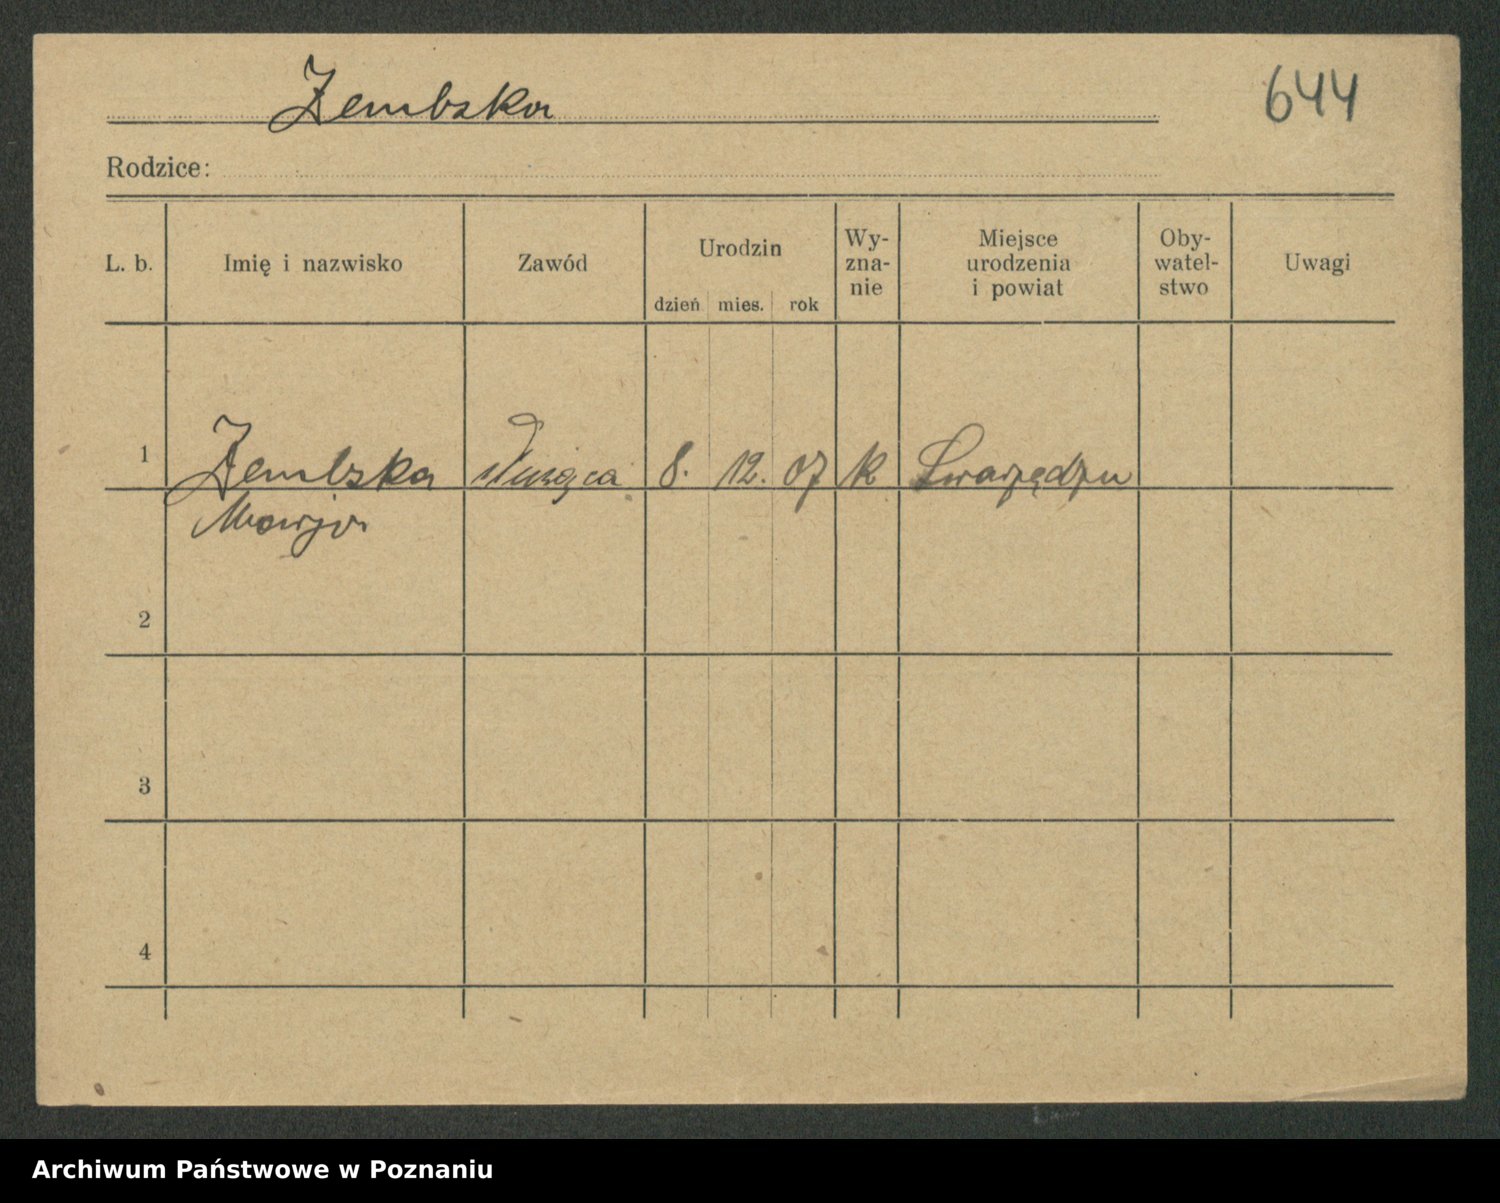 Zembska
644
Rodzice:
L. b.
Imię i nazwisko
Zawód
Urodzin
dzień mies. rok
Wy-
zna-
nie
Miejsce
urodzenia
i powiat
Oby-
watel-
stwo
Uwagi
1 Zembska służąca 8. 12. 07 k Swarzędzu
Marja
2
3
4
Archiwum Państwowe w Poznaniu